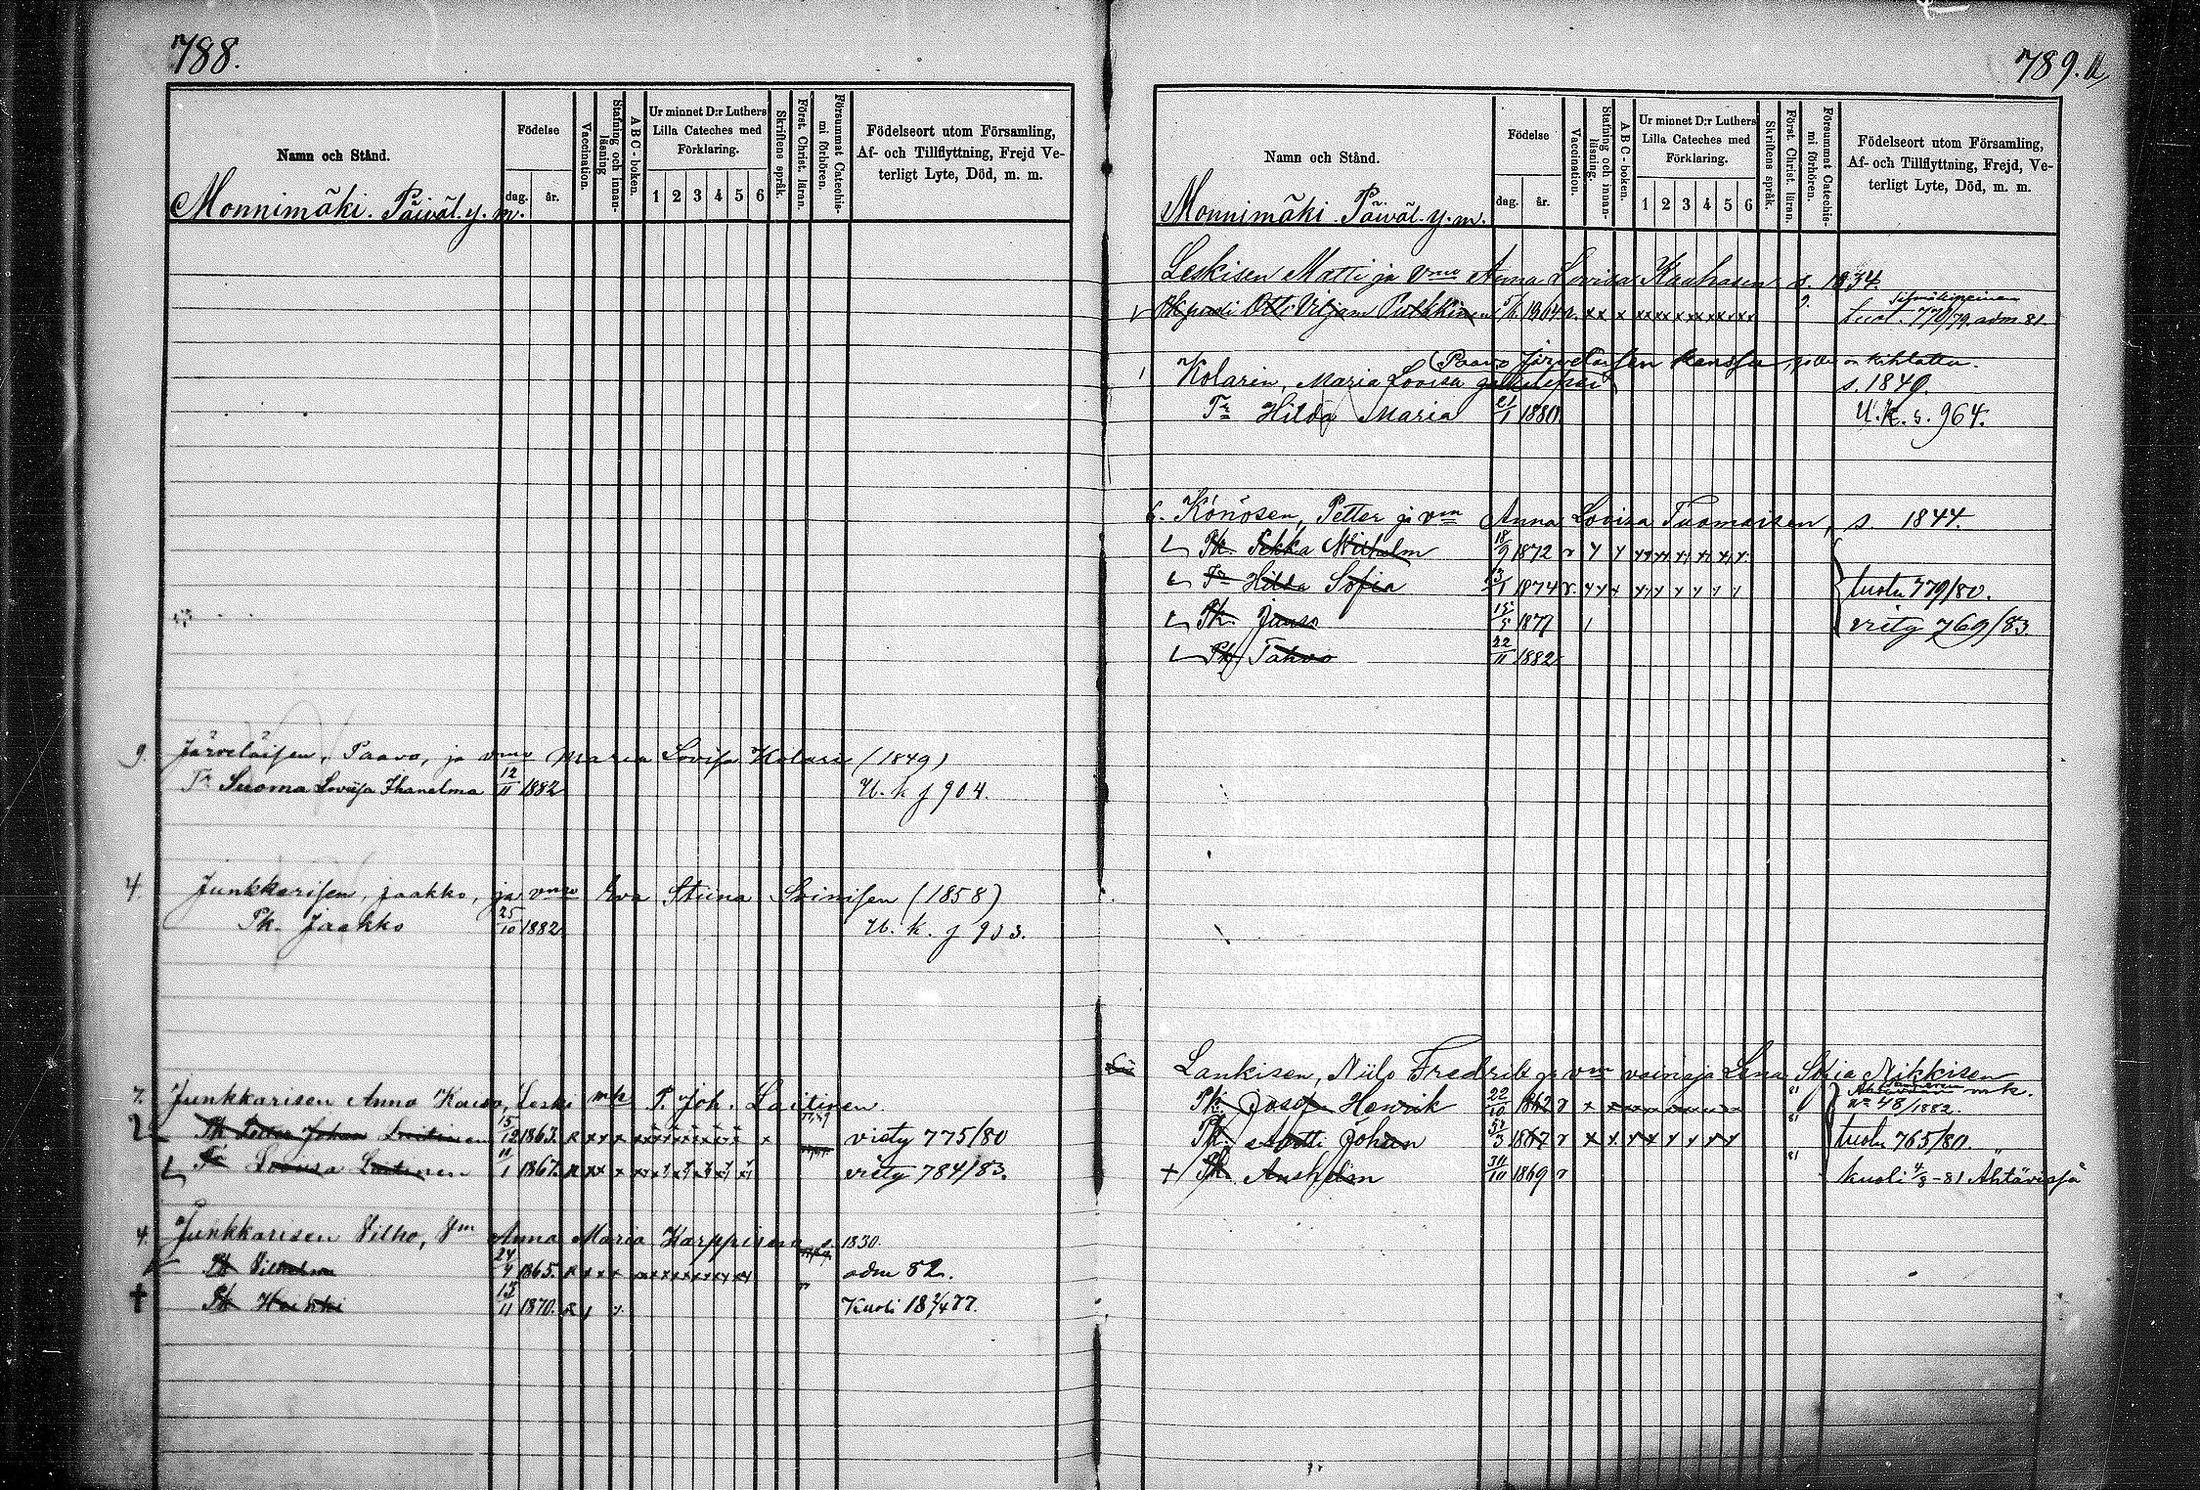 788.
Namn och Stånd.
Födelse
dag.
år.
Vaccination.
Stafning och innan-läsning
ABC-boken.
Ur minnet D:r Luthers Lilla Cateches med Förklaring.
1 2 3 4 5 6
Skriftens språk.
Först. Christ. läran.
Försummat Catechis-mi förhören.
Födelseort utom Församling,
Af- och Tillflyttning, Frejd Ve-
terligt Lyte, Död, m. m.
Monnimäki. Päiväl. y. m.
9. Järveläisen, Paavo, ja vmo Maria Lovisa Kolari (1849)
Tr Suoma Loviisa Ihanelma 12/11 1882 U. k s 904.
4. Junkkarisen, Jaakko, ja vmo Eva Stiina (1858)
Pk. Jaakko 25/10 1882 U. k. s 903.
7. Junkkarisen Anna Kaisa, Leski mk P. Joh. Laitinen
Pk Petter Johan Laitinen 15/12 1863. viety 775/80
Tr Lovisa Laitinen 11/1 1867. viety 784/83.
4. Junkkarisen Vilho, Vm Anna Maria Karppisen s. 1830.
Pk Vilhelm 24/4 1865. adm 82.
Pk Heikki 13/11 1870. Kuoli 18 2/4 77.
789.
Namn och Stånd.
Födelse
dag.
år.
Vaccination.
Stafning och innan-läsning.
ABC-boken.
Ur minnet D:r Luthers Lilla Cateches med Förklaring.
1 2 3 4 5 6
Skriftens språk.
Först. Christ. läran.
Försummat Catechis-mi förhören.
Födelseort utom Församling,
Af- och Tillflyttning, Frejd, Ve-
terligt Lyte, Död, m. m.
Monnimäki. Päiväl. y. m.
Leskisen Matti ja vmo Anna Lovisa Kauhasen s. 1834.
Otto Viljam Puhkinen 1964 tuot. 770/79. adm 81.
(Paavo Järveläisen kanssa, on kihlattu.
Kolarin, Maria Lovisa s. 1849.
Tr Hilda Maria 21/1 1880. U. K. s. 964.
6. Könösen, Petter ja vm Anna Lovisa Tuomaisen, s. 1844.
Pk. Pekka Wilhelm 18/9 1872
Tr Hilda Sofia 13/1 1874 tuotu 779/80.
Pk. Juuso 15/5 1877 viety 769/83.
Pk Tahvo 22/11 1882
Lankisen, Niilo Fredrik ja vm vainaja Lena Sofia Nikkisen
Pk. Josef Henrik 22/10 1862 81 mk. No 48/1882.
Pk. Antti Johan 1867 81 tuotu 765/80.
+ Pk Anshelm 30/10 1869 81 kuoli 4/8-81 Ahtävissä